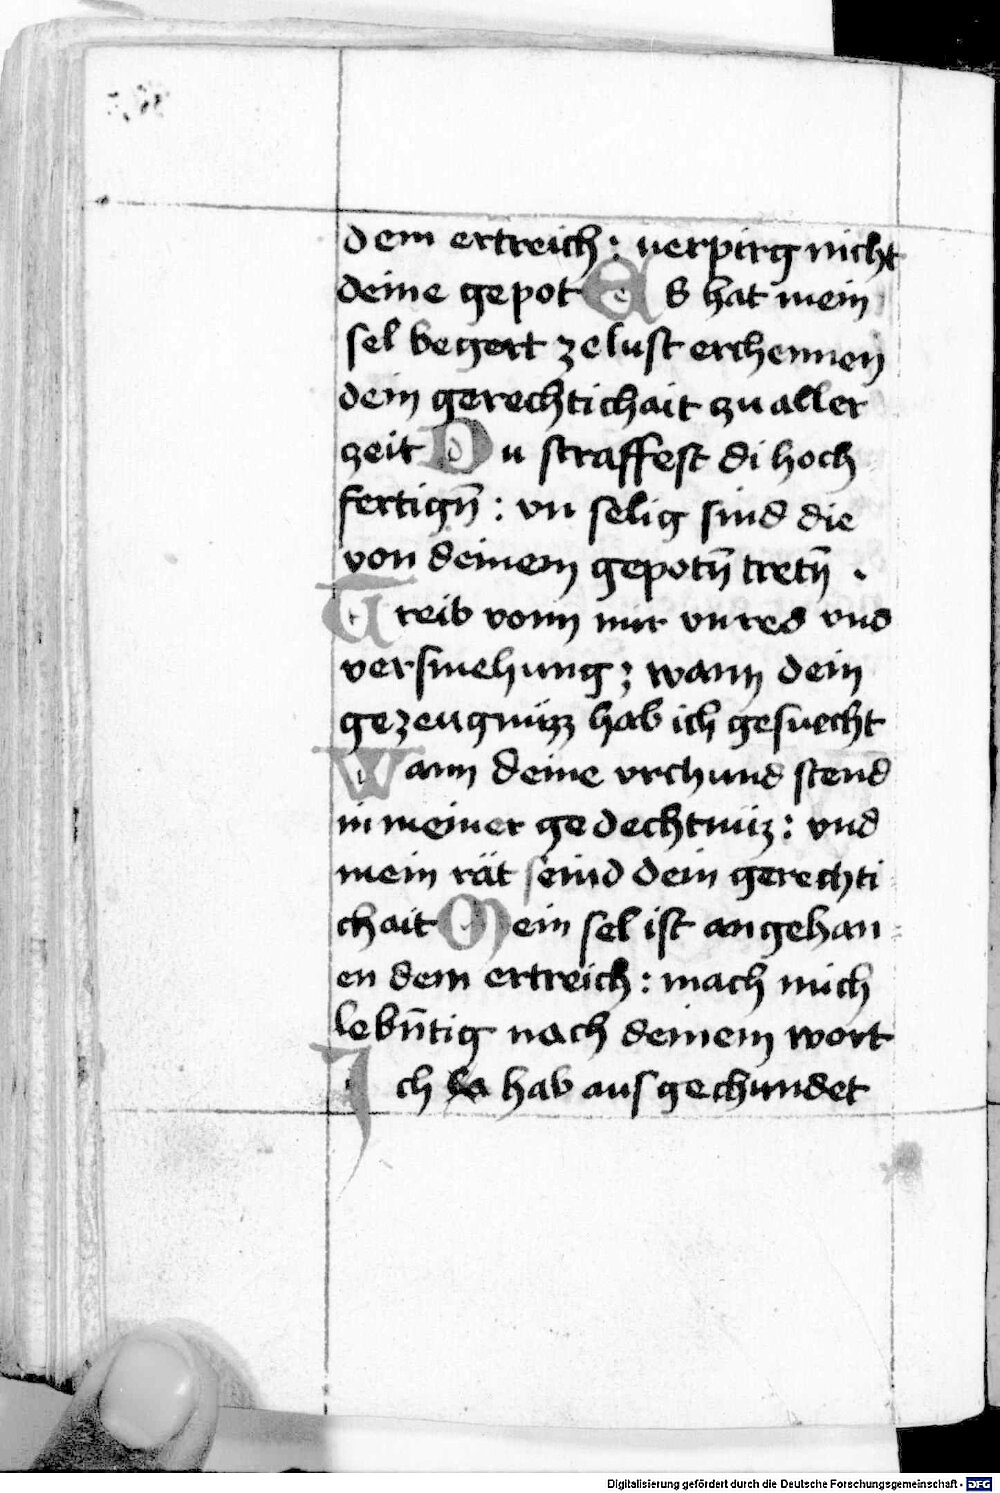 dem ertreich : verpirg nicht
deine gepot Es hat mein
sel begert ze lust erchennen
dein gerechtichait zu aller
zeit Du straffest di hoch
fertign̄ : vn selig sind die
von deinem gepotn̄ tretn̄ .
Treib vonn mir vnred vnd
versmehung ; wann dein
gezeugnüzz hab ich gesuecht
Wann deine vrchund stend
in meiner gedechtnüz : vnd
mein rät seind dein gerechti
chait Mein sel ist angehan
en dem ertreich : mach mich
lebn̄tig nach deinem wort
Ich hab ausgechundet
Digitalisierung gefördert durch die Deutsche Forschungsgemeinschaft - DFG